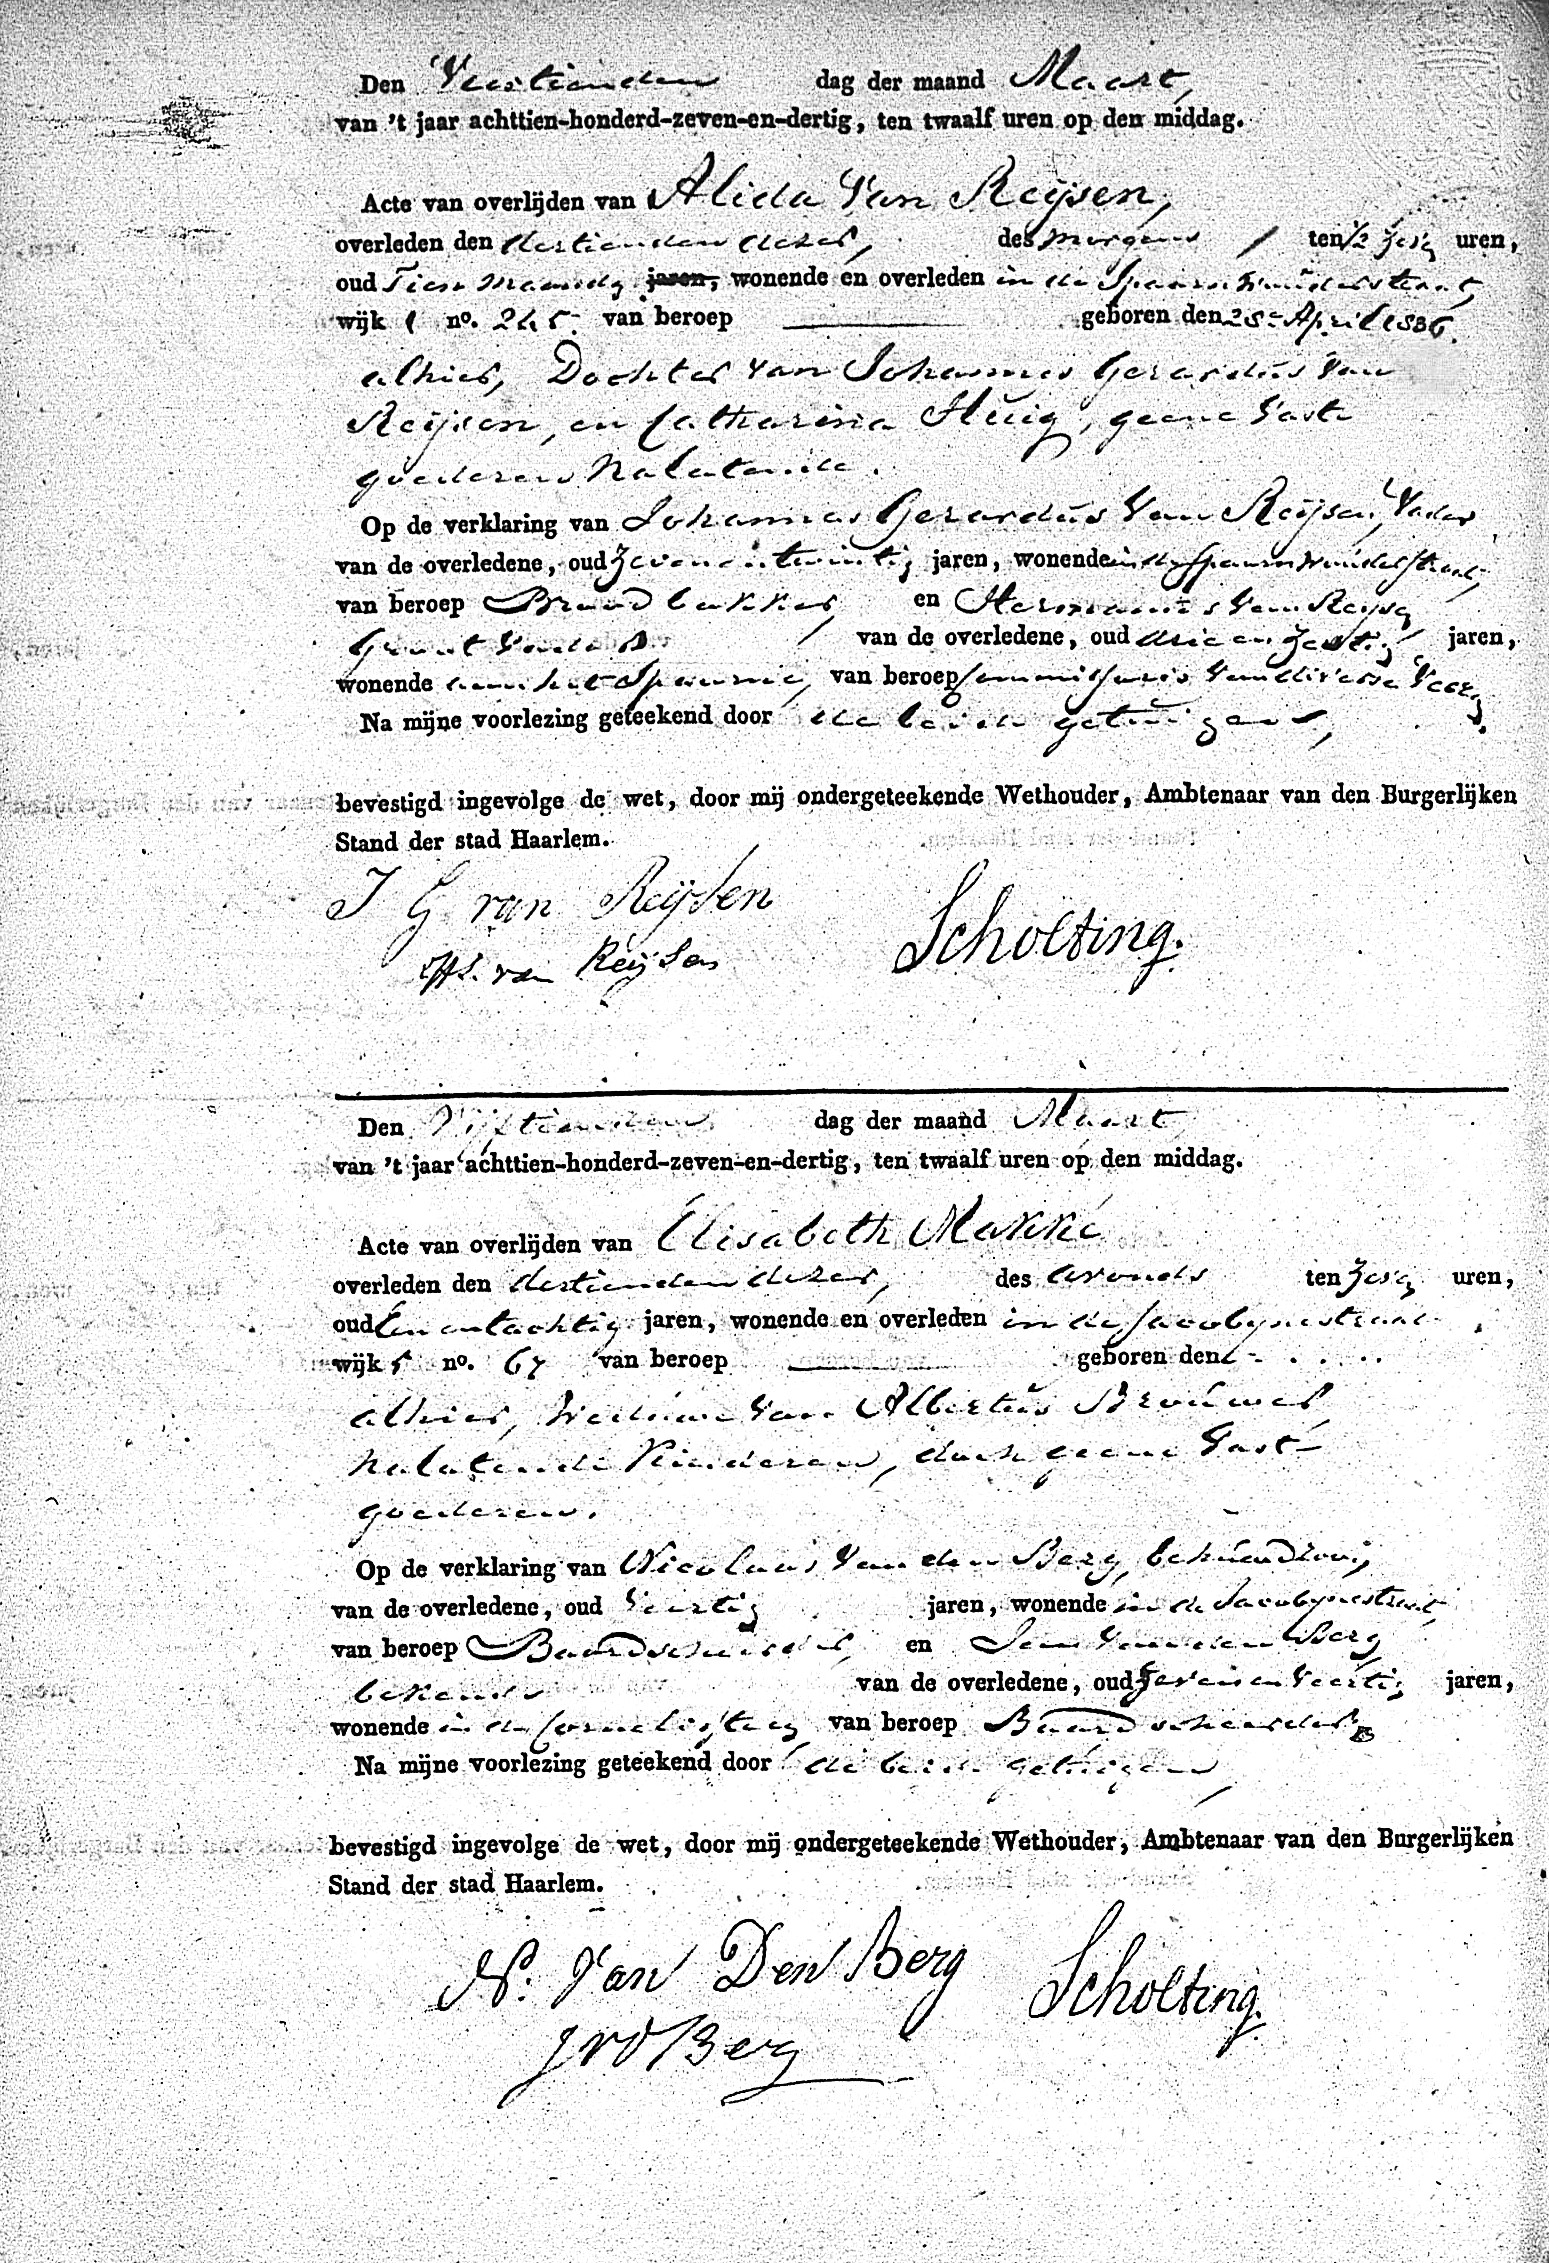 Den Veertienden dag der maand Maart,
van 't jaar achttien-honderd-zeven-en-dertig, ten twaalf uren op den middag.
Acte van overlijden van Alida Van Reijsen,
overleden den dertienden dezer, des morgens ten ½ zes uren,
oud Tien maanden jaren, wonende en overleden in de Spaarnwouderstraat,
wijk 1 no. 245 van beroep geboren den 28 April 1836.
alhier, Dochter van Johannes Gerardus Van
Reijsen, en Catharina Huig, geene Vaste
goederen Nalatende.
Op de verklaring van Johannes Gerardus Van Reijsen, Vader
van de overledene, oud Zevenentwintig jaren, wonende in de Spaarnwouderstraat,
van beroep Broodbakker, en Hermanus Van Reijsen
Groot Vader van de overledene, oud drie en Zestig jaren,
wonende aan het Spaarne, van beroep Commissaris Van diverse Veeren.
Na mijne voorlezing geteekend door de beide getuigen,
bevestigd ingevolge de wet, door mij ondergeteekende Wethouder, Ambtenaar van den Burgerlijken
Stand der stad Haarlem.
J G van Reijsen
van Reijsen Scholting.
Den Vijftienden dag der maand Maart
van 't jaar achttien-honderd-zeven-en-dertig, ten twaalf uren op den middag.
Acte van overlijden van Elisabeth Makké
overleden den dertienden dezer, des avonds ten zes uren,
oud Een entachtig jaren, wonende en overleden in de Jacobijnestraat
wijk 5 no. 67 van beroep geboren den
alhier, Weduwe Van Albertus Brouwer,
Nalatende Kinderen, doch geene Vaste
goederen.
Op de verklaring van Nicolaas Van den Berg, behuwdzoon,
van de overledene, oud Veertig jaren, wonende in de Jacobijnestraat,
van beroep Baardscheerder, en Jan Van den Berg
bekende van de overledene, oud Zevenen Veertig jaren,
wonende in de Cornelissteeg van beroep Baardscheerder
Na mijne voorlezing geteekend door de beide getuigen,
bevestigd ingevolge de wet, door mij ondergeteekende Wethouder, Ambtenaar van den Burgerlijken
Stand der stad Haarlem.
N. Van Den Berg Scholting.
J V D Berg